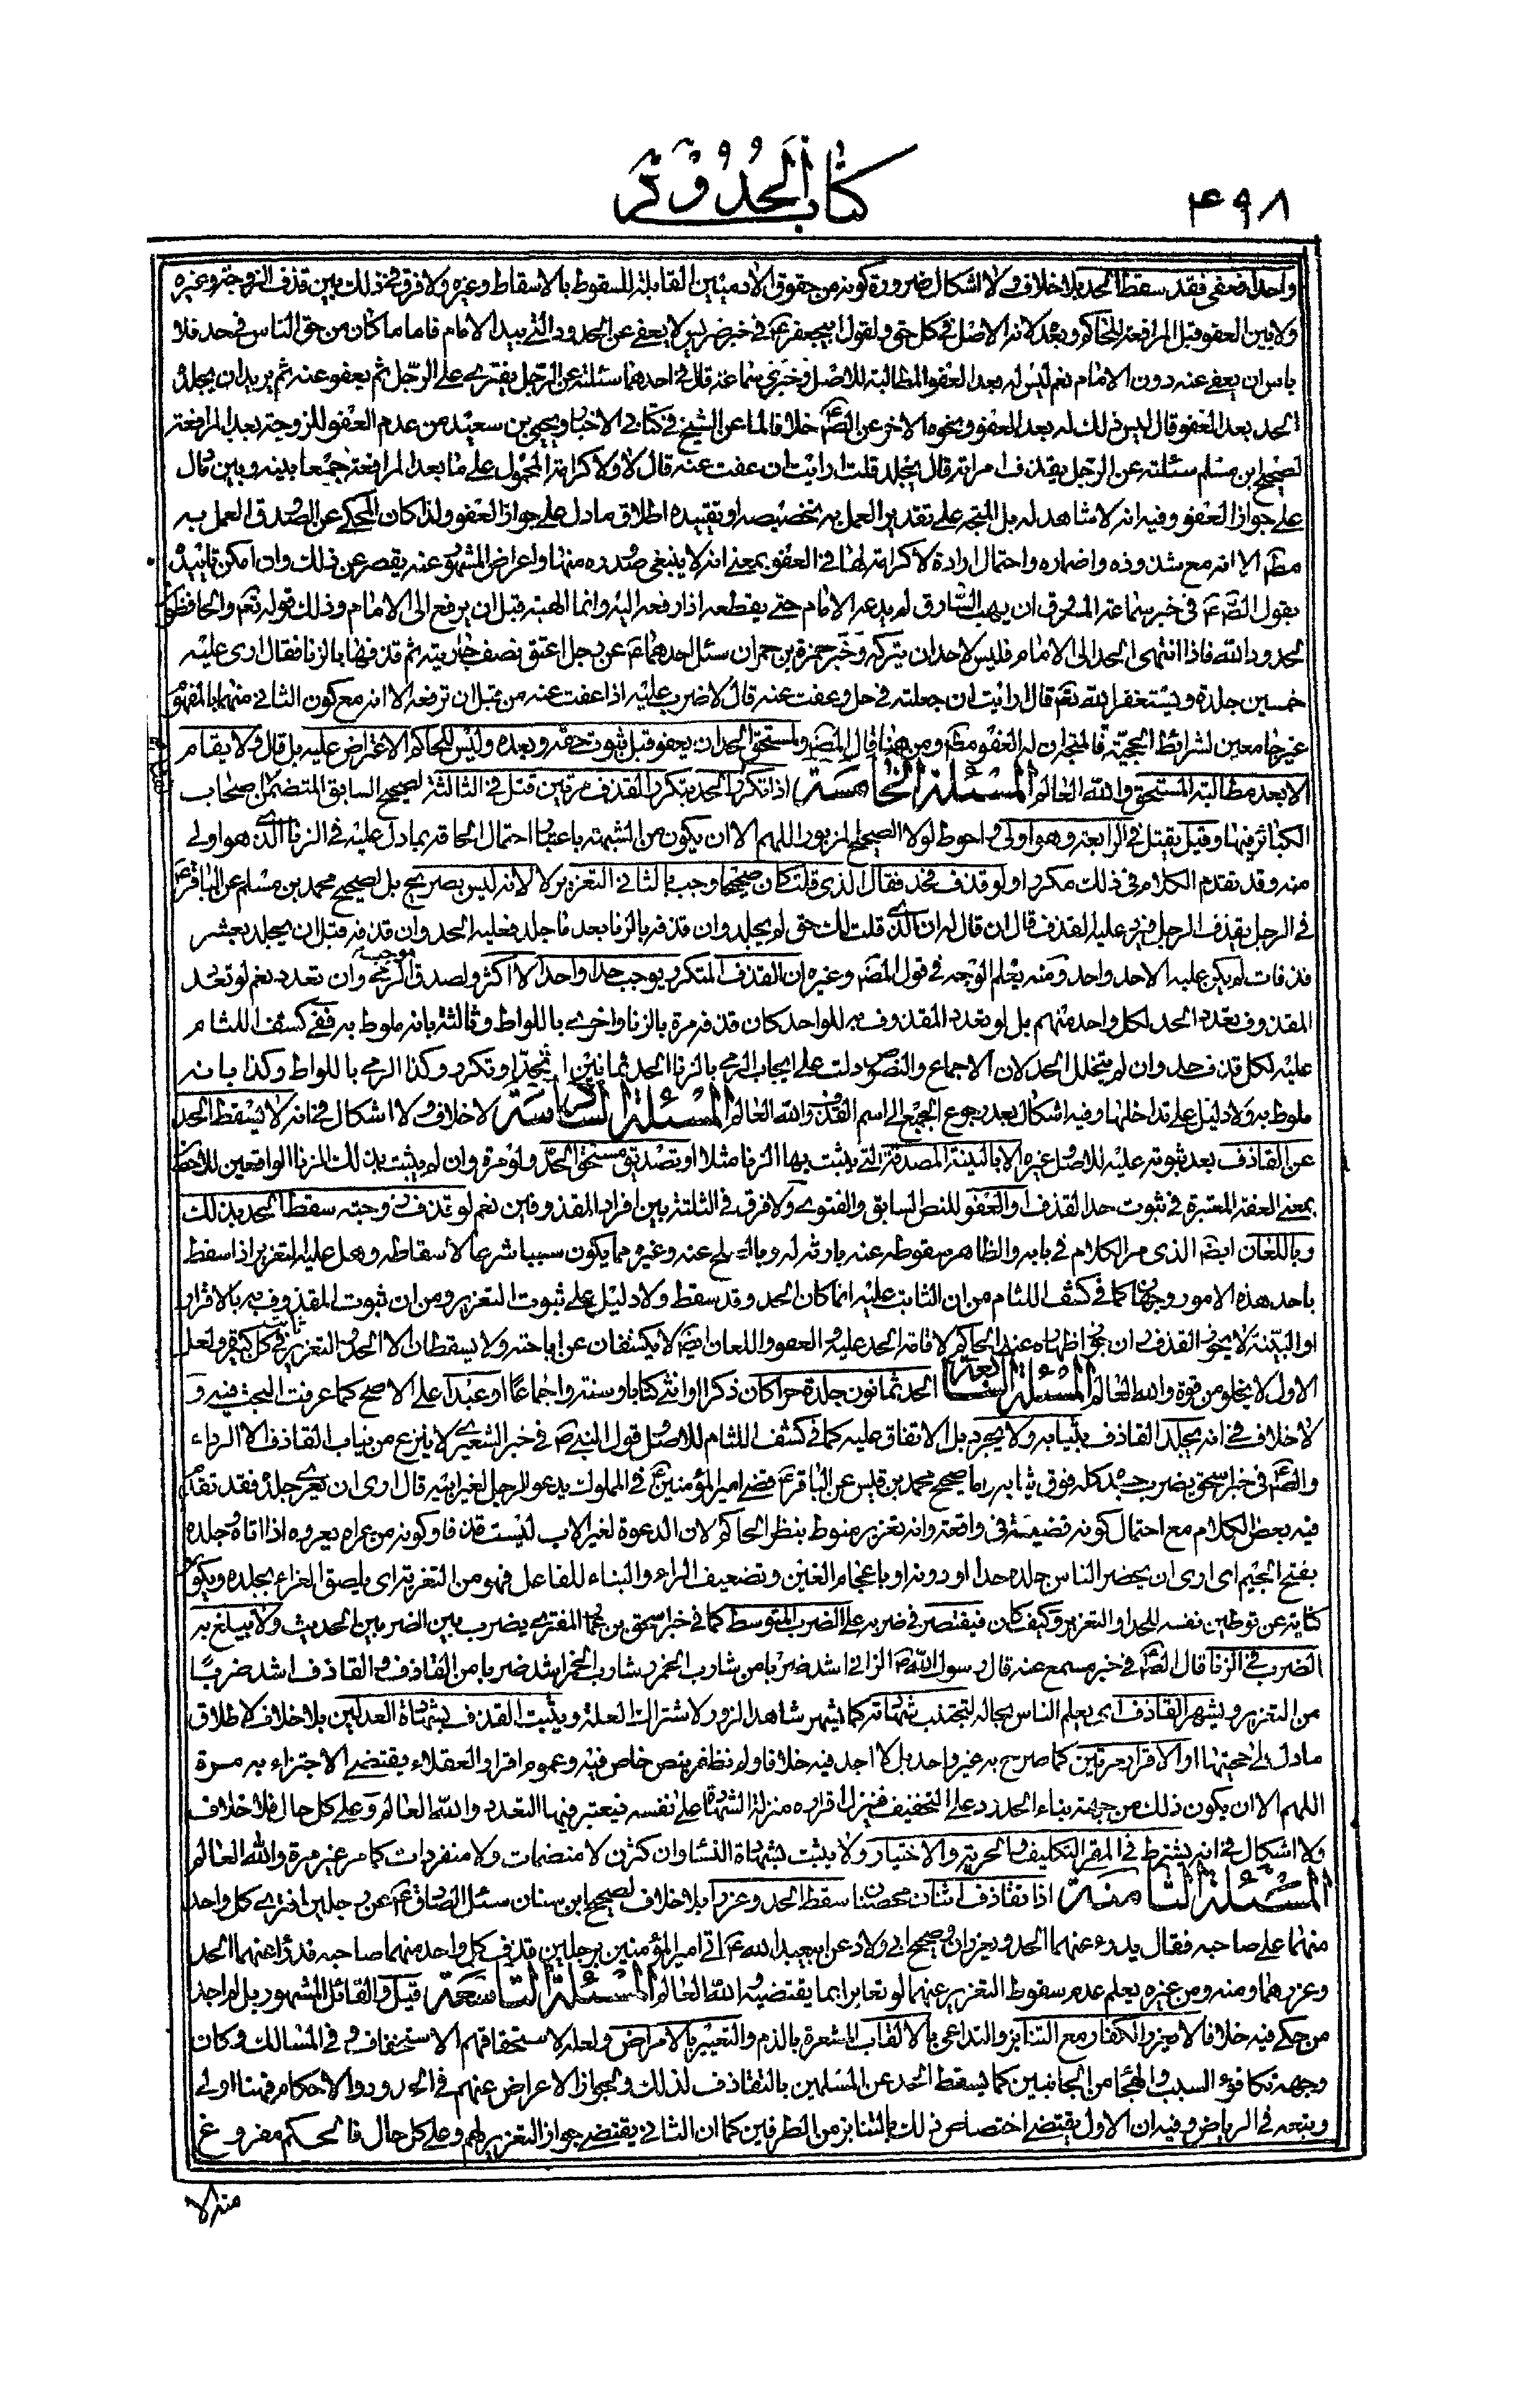 ٤٩٨
كتاب الحدود
واحدا فعفى فقد سقط الحد بلا خلاف ولا اشكال ضرورة كونه من حقوق الادميين القابلة للسقوط بالاسقاط وغيره ولا فرق في ذلك بين قذف الزوجة وغيره
ولا بين العفو قبل المرافعة للحاكم وبعده لانه الاصل في كل حق ولقول ابي جعفر ع في خبر ضريس لا يعفى عن الحدود التي بيد الامام فاما ما كان من حق الناس في حد فلا
باس ان يعفى عنه دون الامام نعم ليس له بعد العفو المطالبة للاصل وخبري سماعة قال في احدهما سئلته عن الرجل يفتري على الرجل ثم يعفو عنه ثم يريد ان يجلده
الحد بعد العفو قال ليس ذلك له بعد العفو ونحوه الاخر عن الص ع خلافا لما عن الشيخ في كتابي الاخبار ويحيى بن سعيد من عدم العفو للزوجة بعد المرافعة
لصحيح ابن مسلم سئلته عن الرجل يقذف امراته قال يجلد قلت ارايت ان عفت عنه قال لا ولا كرامة المحمول على ما بعد المرافعة جمعا بينه وبين ما دل
على جواز العفو وفيه انه لا شاهد له بل المتجه على تقدير العمل به تخصيصه او تقييده اطلاق ما دل على جواز العفو ولذا كان المحكي عن الصدوق العمل به
مط الا انه مع شذوذه واضماره واحتمال ارادة لا كرامة لها في العفو بمعنى انه لا ينبغي صدوره منها واعراض المشهور عنه يقصر عن ذلك وان امكن تاييده
بقول الص ع في خبر سماعة المسروق ان يهب السارق لم يدعه الامام حتى يقطعه اذا رفعه اليه وانما الهبة قبل ان يرفع الى الامام وذلك قوله تعم والحافظون
لحدود الله فاذا انتهى الحد الى الامام فليس لاحد ان يتركه وخبر حمزة بن حمران سئل احدهما ع عن رجل اعتق نصف جاريته ثم قذفها بالزنا فقال ارى عليه
خمسين جلدة ويستغفر الله تعم قال ارايت ان جعلته في حل وعفت عنه قال لا ضرب عليه اذا عفت عنه من قبل ان ترفعه الا انه مع كون الثاني منهما بالمفهوم
غير جامعين لشرائط الحجية فالمتجه ان له العفو مط ومن هنا قال المص ولمستحق الحد ان يعفو قبل ثبوت حقه وبعده وليس للحاكم الاعتراض عليه بل قال ولا يقام
الا بعد مطالبة المستحق والله العالم المسئلة الخامسة اذا تكرر الحد بتكرر القذف مرتين قتل في الثالثة لصحيح السابق المتضمن اصحاب
الكبائر فيها وقيل يقتل في الرابعة وهو اولى واحوط لولا الصحيح المزبور اللهم الا ان يكون من الشبهة باعتبار احتمال الحاقه بما دل عليه في الزنا الذي هو اولى
منه وقد تقدم الكلام في ذلك مكررا ولو قذف فحد فقال الذي قلت كان صحيحا وجب بالثاني التعزير لا لانه ليس بصريح بل لصحيح محمد بن مسلم عن الباقر ع
في الرجل يقذف الرجل فيزيد عليه القذف قال ان قال له ان الذي قلت لك حق لم يجلد وان قذفه بالزنا بعد ما جلد فعليه الحد وان قذفه قبل ان يجلد بعشر
قذفات لم يكن عليه الا حد واحد ومنه يعلم الوجه في قول المص وغيره ان القذف المتكرر يوجب حدا واحدا لا اكثر ولصدق الرمي وان تعدد نعم لو تعدد
المقذوف تعدد الحد لكل واحد منهم بل لو تعدد المقذوف به للواحد كان قذفه مرة بالزنا واخرى باللواط وثالثة بانه ملوط به ففي كشف اللثام
عليه لكل قذف حد وان لم يتخلل الحد لان الاجماع والنصوص دلت على ايجاب الرمي بالزنا الحد ثمانين اتحد او تكرر وكذا الرمي باللواط وكذا بانه
ملوط به ولا دليل على تداخلها وفيه اشكال بعد رجوع الجميع الى اسم القذف والله العالم المسئلة السادسة لا خلاف ولا اشكال في انه لا يسقط الحد
عن القاذف بعد ثبوته عليه للاصل وغيره الا بالبينة المصدقة التي يثبت بها الزنا مثلا او تصديق مستحق الحد ولو مرة وان لم يثبت بذلك الزنا الواقعين للاحصان
بمعنى العفة المعتبرة في ثبوت حد القذف او العفو للنص السابق والفتوى ولا فرق في الثلثة بين افراد المقذوفين نعم لو قذف زوجته سقط الحد بذلك
وباللعان ايضا الذي مر الكلام في بابه والظاهر سقوطه عنه بارثه له وبالصلح عنه وغيره مما يكون سببا شرعا لاسقاطه وهل عليه التعزير اذا سقط
باحد هذه الامور وجهان كما في كشف اللثام من ان الثابت عليه انما كان الحد وقد سقط ولا دليل على ثبوت التعزير ومن ان ثبوت المقذوف به بالاقرار
او البينة لا يجوز القذف وان جوز اظهاره عند الحاكم لاقامة الحد عليه والعفو واللعان ايضا لا يكشفان عن اباحته ولا يسقطان الا الحد والتعزير ثابت في كل كبيرة ولعل
الاول لا يخلو من قوة والله العالم المسئلة السابعة الحد ثمانون جلدة حرا كان ذكرا او انثى كتابا وسنة واجماعا او عبدا على الاصح كما عرفت البحث فيه و
لا خلاف في انه يجلد القاذف بثيابه ولا يجرد بل الاتفاق عليه كما في كشف اللثام للاصل وقول النبي ص في خبر الشعيري لا ينزع من ثياب القاذف الا الرداء
والص ع في خبر اسحق يضرب جسده كله فوق ثيابه اما صحيح محمد بن قيس عن الباقر ع قضى امير المؤمنين ع في المملوك يدعو الرجل لغير ابيه قال ارى ان يعرى جلده فقد تقدم
فيه بعض الكلام مع احتمال كونه قضية في واقعة وانه تعزير منوط بنظر الحاكم لان الدعوة لغير الاب ليست قذفا وكونه من عراه يعروه اذا اتاه وجلده
بفتح الجيم اى ارى ان يحضر الناس جلده حدا او دونه او باعجام الغين وتضعيف الراء والبناء للفاعل فهو من التغرية اى يلصق الغراء بجلده ويكون
كناية عن توطين نفسه للحد او التعزير وكيف كان فيقتصر في ضربه على الضرب المتوسط كما في خبر اسحق بن عمار المفترى يضرب بين الضربين الحديث ولا يبلغ به
الضرب في الزنا قال الص ع في خبر مسمع عنه قال رسول الله ص الزاني اشد ضربا من شارب الخمر وشارب الخمر اشد ضربا من القاذف والقاذف اشد ضربا
من التعزير ويشهر القاذف اى يعلم الناس بحاله لتجتنب شهادته كما يشهر شاهد الزور لاشتراك العلة ويثبت القذف بشهادة العدلين بلا خلاف لاطلاق
ما دل على حجيتها او الاقرار مرتين كما صرح به غير واحد بل لا اجد فيه خلافا ولم نظفر بنص خاص فيه وعموم اقرار العقلاء يقتضى الاجتزاء به مرة
اللهم الا ان يكون ذلك من جهة بناء الحدود على التخفيف فينزل اقراره منزلة الشهادة على نفسه فيعتبر فيها التعدد والله العالم وعلى كل حال فلا خلاف
ولا اشكال في انه يشترط في المقر التكليف والحرية والاختيار ولا يثبت بشهادة النساء وان كثرن لا منضمات ولا منفردات كما مر غير مرة والله العالم
المسئلة الثامنة اذا تقاذف اثنان محصنان سقط الحد وعزرا بلا خلاف لصحيح ابن سنان سئل الصادق ع عن رجلين افترى كل واحد
منهما على صاحبه فقال يدرء عنهما الحد ويعزران وصحيح ابي ولاد عن ابي عبد الله ع اتى امير المؤمنين برجلين قذف كل واحد منهما صاحبه فدرء عنهما الحد
وعزرهما ومنه ومن غيره يعلم عدم سقوط التعزير عنهما لو تعايرا بما يقتضيه والله العالم المسئلة التاسعة قيل والقائل المشهور بل لم اجد
من حكى فيه خلافا لا يعزر الكفار مع التنابز والتداعى بالالقاب المشعرة بالذم والتعيير بالامراض ولعله لاستحقاقهم الاستخفاف وفي المسالك وكان
وجهه تكافؤ السب والهجاء من الجانبين كما يسقط الحد عن المسلمين بالتقاذف لذلك ولجواز الاعراض عنهم في الحدود والاحكام فهنا اولى
وتبعه في الرياض وفيه ان الاول يقتضى اختصاص ذلك بالتنابز من الطرفين كما ان الثاني يقتضى جواز التعزير لهم وعلى كل حال فالحكم مفروغ
منه لا